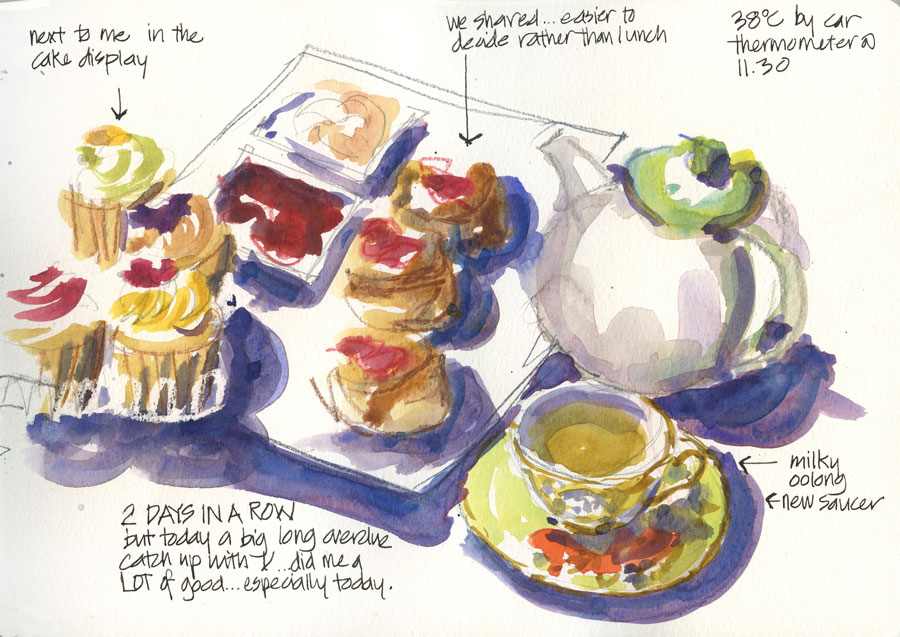 next to me in the
cake display
we shared...easier to
decide rather than lunch
38°C by car
thermometer @
11.30
milky
oolong
new saucer
2 DAYS IN A ROW
but today a big long overdue
catch up with K...did me a
LOT of good...especially today.